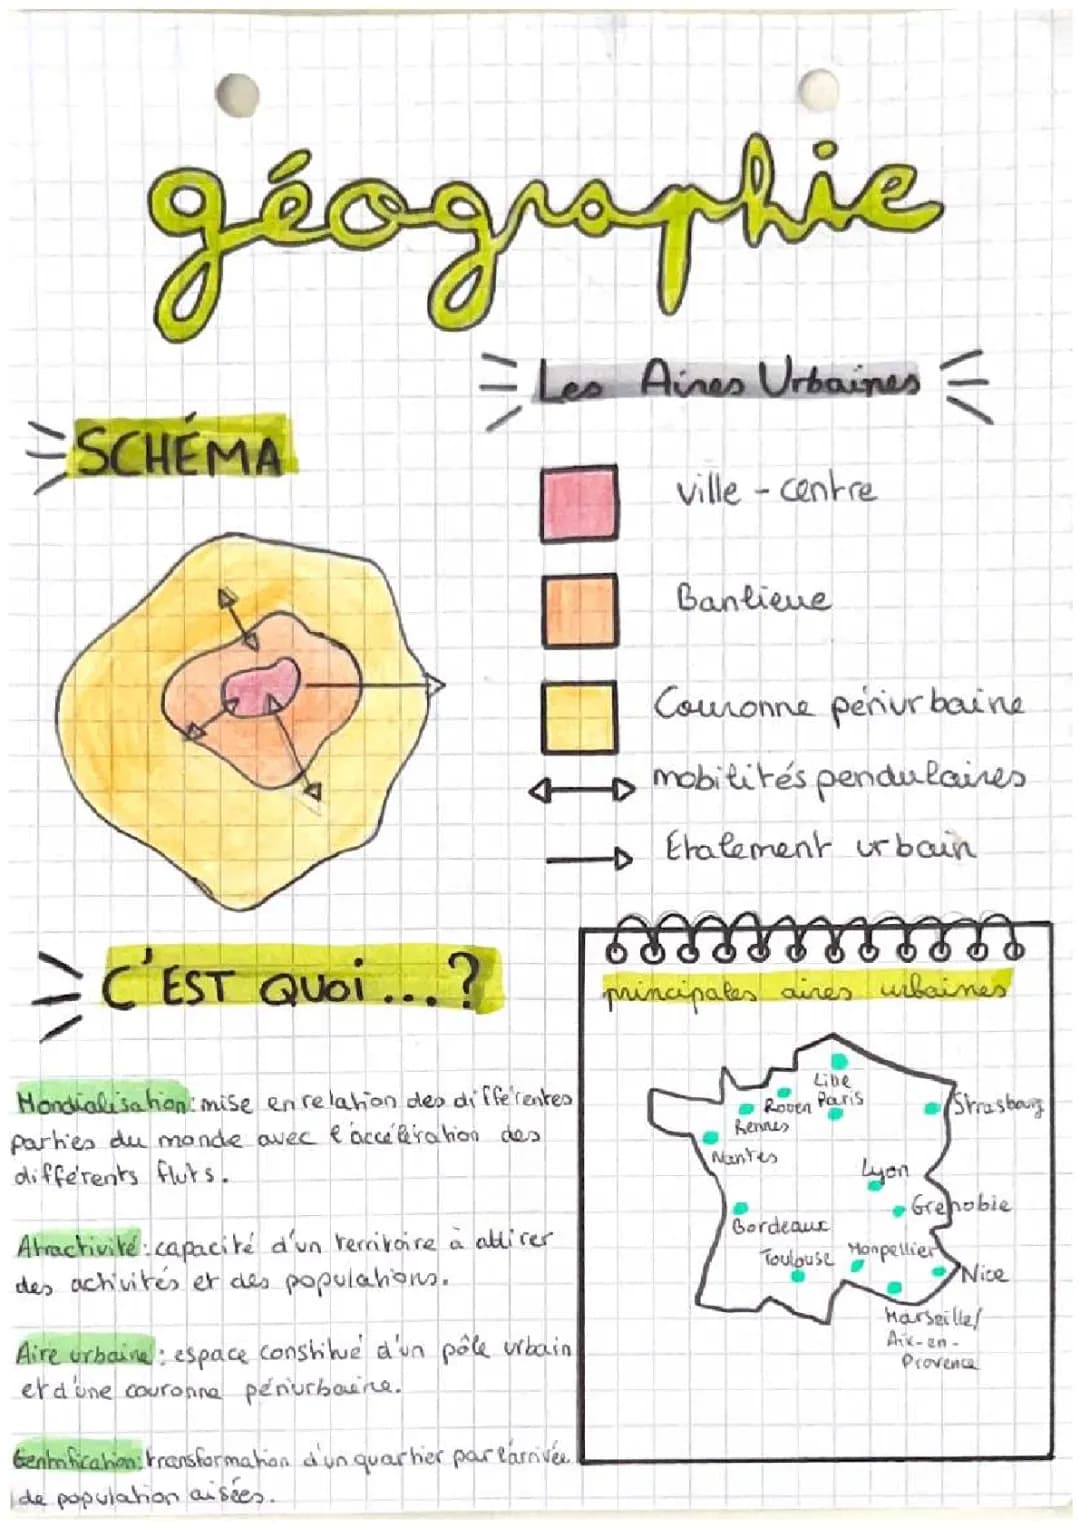 géographie
Les Aires Urbaines
SCHÉMA
ville - centre
Banlieue
Couronne périurbaine
mobilités pendulaires
Etalement urbain
C'EST QUOI...?
Mondialisation: mise en relation des différentes
parties du monde avec l'accélération des
différents fluts.
Atractivité: capacité d'un territoire à attirer
des activités et des populations.
Aire urbaine: espace constitué d'un pôle urbain
et d'une couronne périurbaine.
Gentrification: transformation d'un quartier par l'arrivée
de population aisées.
principales aires urbaines
Lille
Rouen Paris
Strasbourg
Rennes
Nantes
Lyon
Grenoble
Bordeaux
Toulouse Monpellier
Nice
Marseille/
Aix-en-
Provence